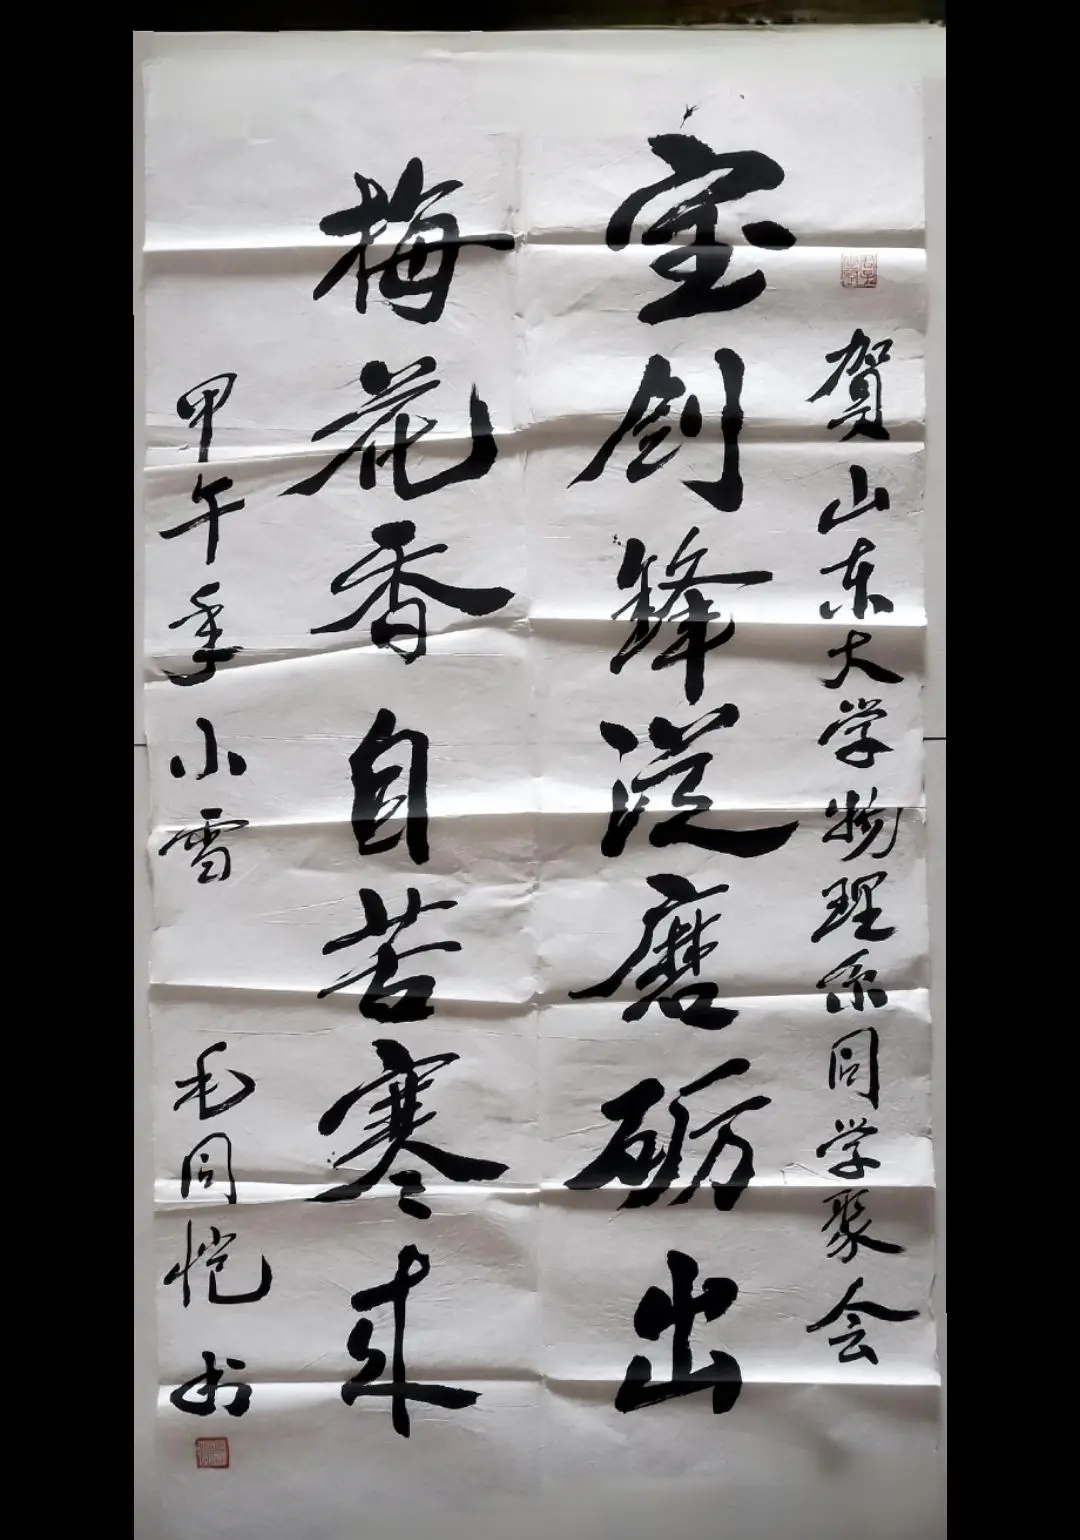 贺山东大学物理系同学聚会
宝剑锋从磨砺出
梅花香自苦寒来
甲午年小雪 毛同恺书